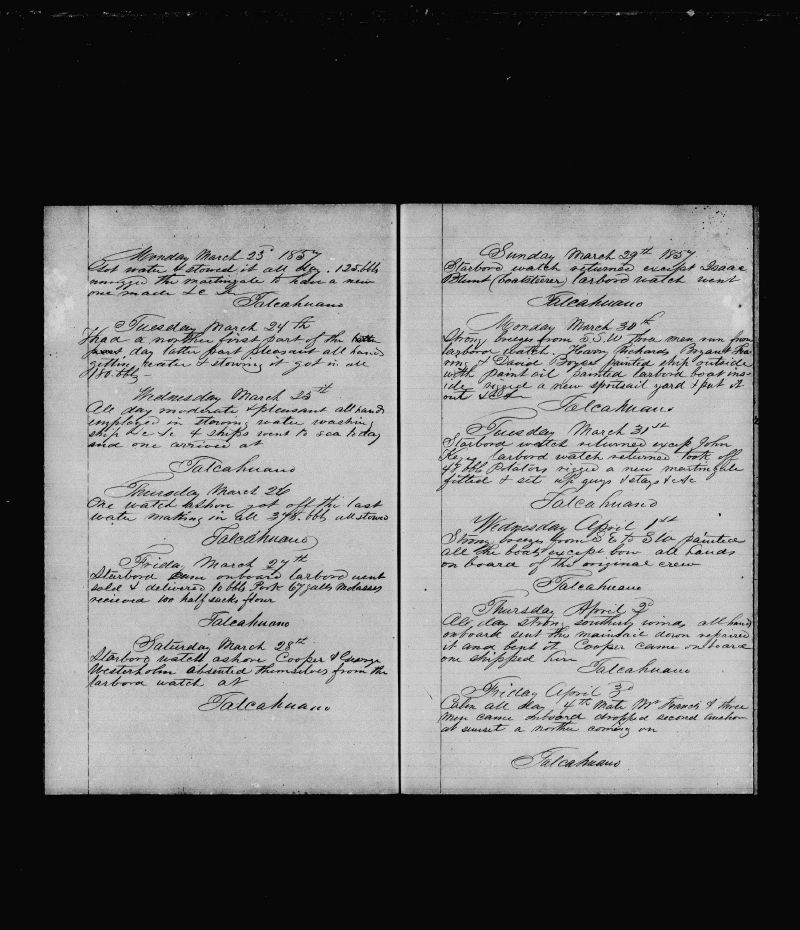 Monday March 23d 1857
Got water & stowed it all day. 125 bbls
unrigged the martingale to have a new
one made &c In
Talcahuano
Tuesday March 24th
had a norther first part of the
day latter part pleasant all hands
getting water & stowing it got in all
180 bbls
Wednesday March 25th
All day moderate & pleasant all hands
employed in stowing water washing
ship &c &c 4 ships went to sea today
and one arrived at
Talcahuano
Thursday March 26
One watch ashore got off the last
water making in all 348 bbls all stowed
Talcahuano
Friday March 27th
Starbord came onboard larbord went
sold & delivered 10 bbls Pork 67 galls Molasses
recieved 100 half sacks flour
Talcahuano
Saturday March 28th
Starbord watch ashore Cooper & George
Westerholm absented themselves from the
larbord watch at
Talcahuano
Sunday March 29th 1857
Starbord watch returned except Isaac
Blunt (boatsteerer) larbord watch went
Talcahuano
Monday March 30th
Strong breezes from S.S.W three men run from
larbord watch Richards Bryant
& David painted ship outside
with paint oil painted larbord boat ins-
ide rigged a new spritsail yard & put it
out &c &c
Talcahuano
Tuesday March 31st
Starbord watch returned except John
Keyes larbord watch returned took off
48 bbls Potatoes rigged a new martingale
fitted & set up guys & stays &c &c
Talcahuano
Wednesday April 1st
Strong breezes from S E to SW painted
all the boats except bow all hands
on board of the original crew
Talcahuano
Thursday April 2d
All day strong southerly winds all hands
onboard sent the mainsail down repaired
it and bent it Cooper came onboard
one shipped here
Talcahuano
Friday April 3d
Calm all day 4th Mate Mr Francis & three
men came onboard dropped second anchor
at sunset a norther coming on
Talcahuano